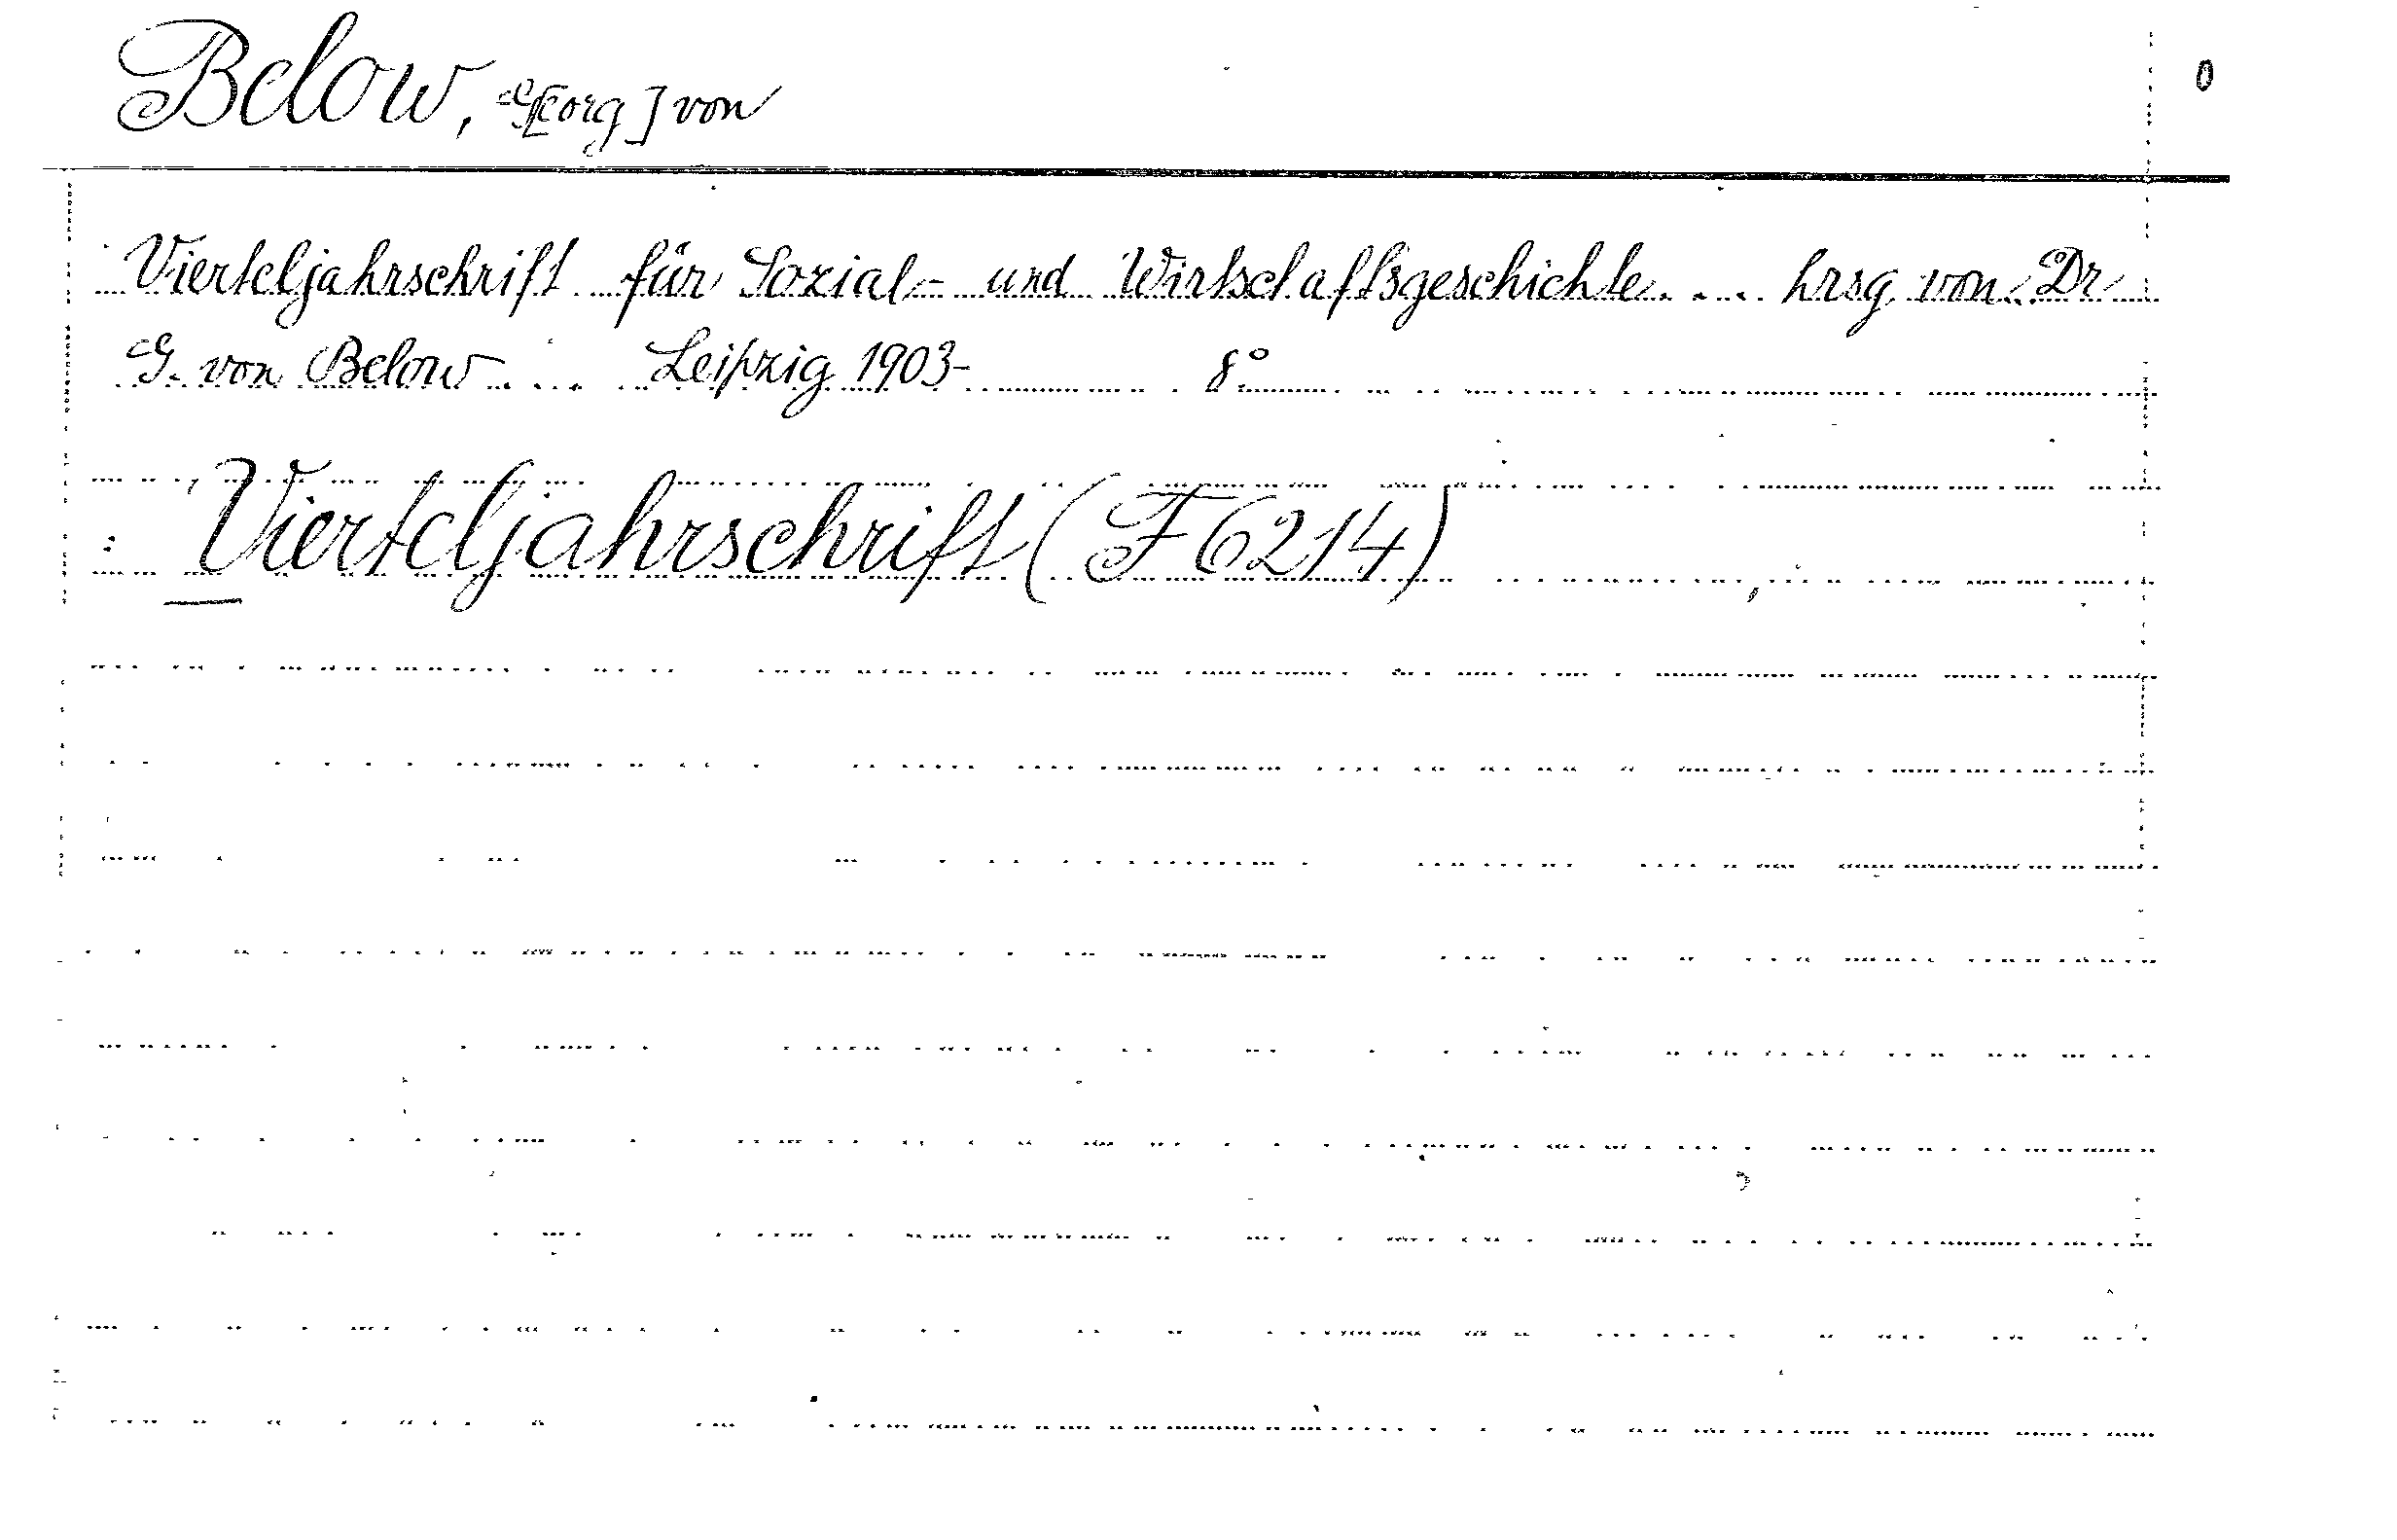 Below, G[eorg] von
0
Vierteljahrschrift für Sozial- und Wirtschaftsgeschichte . . . hrsg. von Dr
G. von Below . . . Leipzig 1903- 8°
Vierteljahrschrift (F 6214)